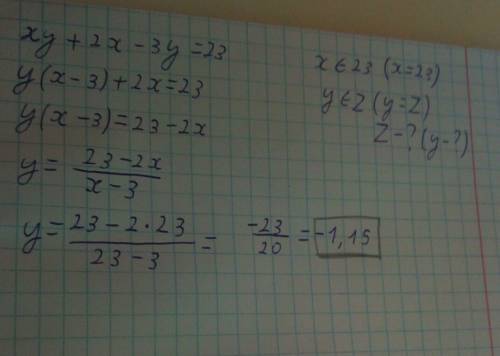 xy + 2x - 3y = 23
y(x-3) + 2x = 23
y(x-3) = 23 - 2x
y = \frac{23-2x}{x-3}
y = \frac{23-2·23}{23-3} = \frac{-23}{20} = -1,15
x ∈ 23 (x=23)
y ∈ Z (y=Z)
Z-? (y-?)